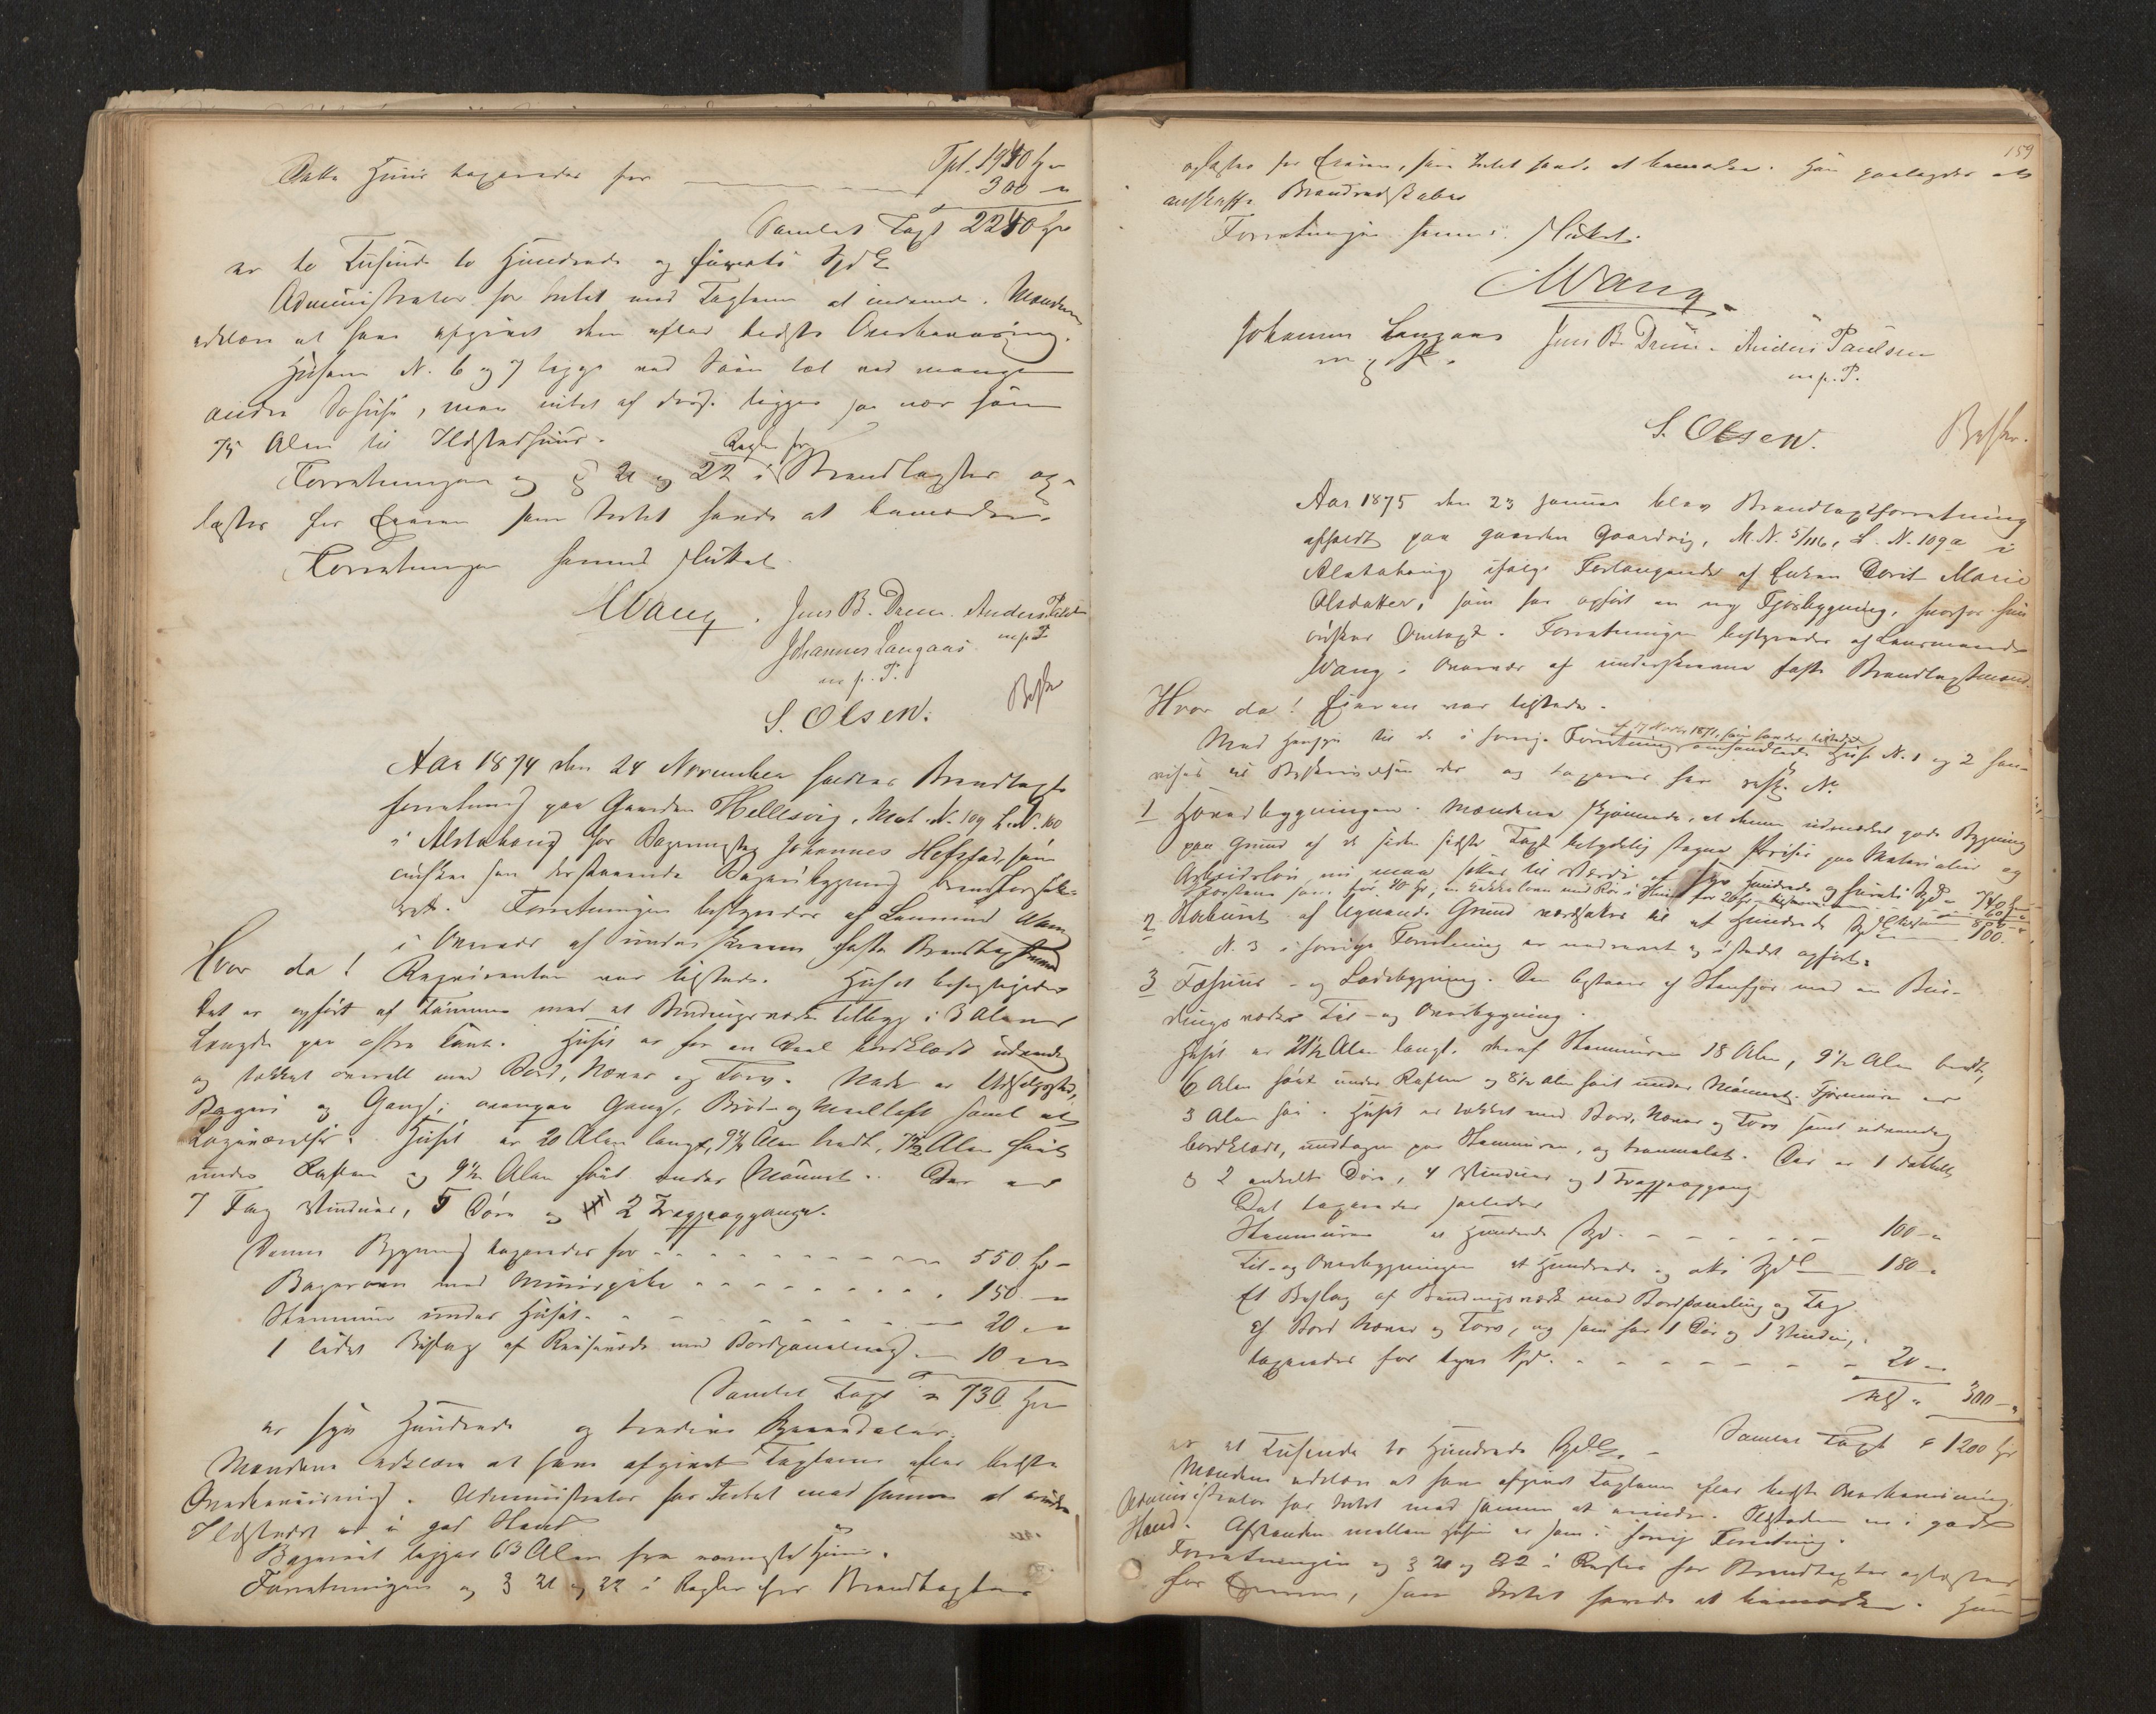 Tpt. 1940 Sp
Dette Huus taxeredes for 300 "
Samlet Taxt 2240 Sp
er to Tusinde to Hundrede og fürreti Spdl
Administrator har Intet mod Taxterne at indvende. Mændene
erklære at have afgivet dem efter bedste Overbeviisning.
Husene N. 6 og 7 ligge ved Søen tæt ved mange
andre Søhuse, men intet af disse ligger saa nær som
75 Alen til Ildstedhuus.
Regler for
Forretningen og § 21 og 22 i Brandtaxter op-
læstes for Eieren som Intet havde at bemærke.
Forretningen hermed sluttet.
Wang. Jens B. Dreen. Anders Paulsen
m.p.P.
Johannes Langaas
m.p.P.
S. Olsen. Besk
Aar 1874 den 24 November holdtes Brandtaxt-
forretning paa Gaarden Hellesvig, Mat. N. 109 L.N. 160
i Alstahoug for Bagermester Johannes Hefstad, som
ønsker sin derstaaende Bageribygning brandforsik-
ret. Forretningen bestyredes af Lensmand Wang
i Overvær af underskrevne faste Brandtaxtmænd
Hvor da! Reqvirenten var tilstede. Huset besigtigedes
Det er opført af Tømmer med et Bindingsværks Tillæg i 3 Alens
Længde paa østre Kant. Huset er for en Deel bordklædt udvendig
og tækket overalt med Bord, Næver og Torv. Nede er Udsalgssted,
Bageri og Gang; ovenpaa Gang, Brød- og Melloft samt et
Logiværelse. Huset er 20 Alen langt, 9½ Alen bredt, 7½ Alen høit
under Raften og 9½ Alen høit under Mønnet. Der er
7 Fag Vinduer, 5 Døre og 2 Trappeopgange.
Denne Bygning taxeredes for 550 Sp "
Bagerovn med Muurpibe 150 "
Steenmuur under Huset 20 "
1 lidet Bislag af Reisværk med Bordpaneling 10 "
Samlet Taxt " 730 Sp
er syv Hundrede og tredive Speciedaler.
Mændene erklære at have afgivet Taxterne efter bedste
Overbeviisning. Administrator har Intet mod samme at erindre
Ildstedet er i god Stand
Bageriet ligger 63 Alen fra nærmeste Huus.
Forretningen og § 21 og 22 i Regler for Brandtaxter
159
oplæstes for Eieren, som Intet havde at bemærke. Han paalagdes at
anskaffe Brandredskaber
Forretningen hermed sluttet.
Wang
Johannes Langaas Jens B. Dreen. Anders Paulsen
m.p.P.
S. Olsen. Besk.
Aar 1875 den 23 Januar blev Brandtaxtforretning
afholdt paa Gaarden Gaardvig, M.N. 5/116, L.N. 109a i
Alstahoug ifølge Forlangende af Enken Dorit Marie
Olsdatter, som har opført en ny Fjøsbygning, hvorfor hun
ønsker Omtaxt. Forretningen bestyredes af Lensmand
Wang i Overvær af underskrevne faste Brandtaxtmænd.
Hvor da! Eieren var tilstede.
Med Hensyn til de i forrige Forretning omhandlede Huse N. 1 og 2 hen-
vises til Beskrivelsen der og taxeres her resp. No
1 Hovedbygningen. Mændene skjønnede, at denne udmærket gode Bygning
paa Grund af de siden sidste Taxt betydelig stegne Priser paa Materialier og
Arbeidsløn nu maa sættes til Værdi af syv Hundrede og fürreti Spd " 740 Sp
2 Staburet af lignende Grund værdsættes til et Hundrede Spdl 100.
N. 3 i forrige Forretning er nedrevet og i Stedet opført:
3 Fæhuus- og Ladebygning. Den bestaaer af Steenfjøs med en Bin-
dingsværks Til- og Overbygning.
Huset er 21½ Alen langt, deraf Steenmuren 18 Alen, 9½ Alen bredt,
6 Alen høit under Raften og 8½ Alen høit under Mønnet. Fjøsmuren er
3 Alen høi. Huset er tækket med Bord, Næver og Torv samt udvendig
bordklædt, undtagen paa Steenmuren, og tranmalet. Der er 1 dobbelt
2 enkelte Døre, 4 Vinduer og 1 Trappeopgang
Det taxeredes saaledes
Steenmuren et Hundrede Spd. 100 "
Til- og Overbygningen et Hundrede og otti Spdl 180 "
Et Bislag af Bindingsværk med Bordpaneling og Tag
af Bord Næver og Torv, og som har 1 Dør og 1 Vindue,
taxeredes for tyve Spd. 20 "
300 "
Samlet Taxt " 1200 Sp
er et Tusinde to Hundrede Spdl.
Mændene erklære at have afgivet Taxterne efter bedste Overbeviisning.
Administrator har Intet mod samme at erindre. Ildstederne er i god
Stand. Afstanden mellem Husene er som i forrige Forretning.
Forretningen og § 21 og 22 i Regler for Brandtaxter oplæstes
for Eieren, som Intet havde at bemærke. Hun